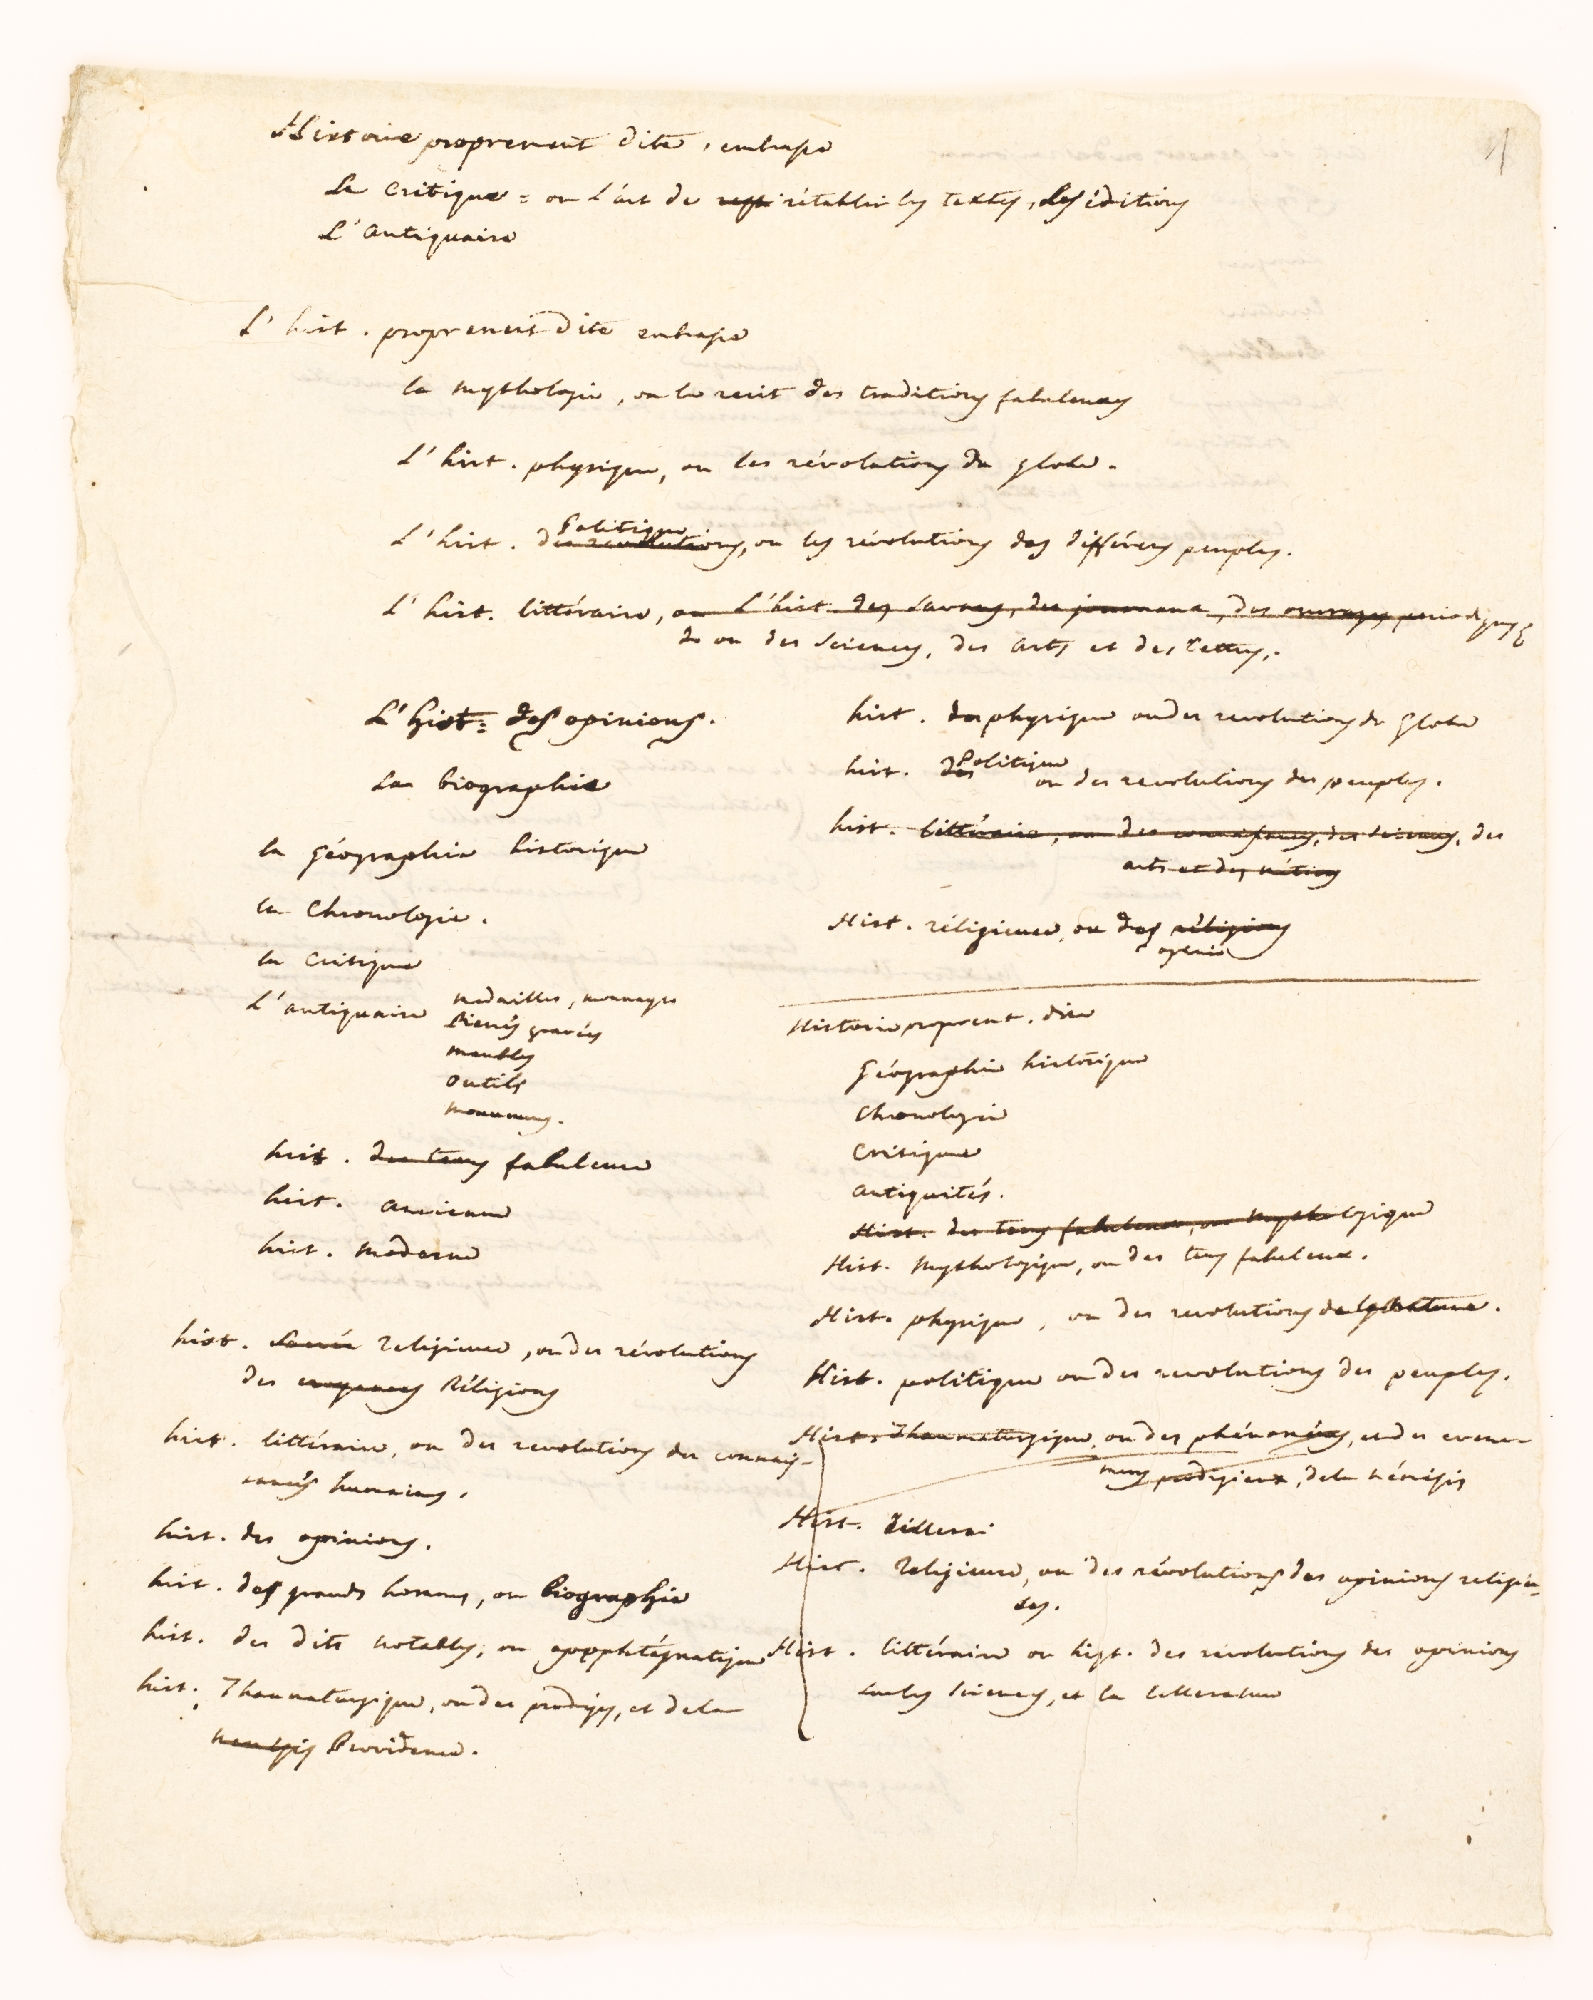 Histoire proprement dite, embrasse
La Critique = ou L'art de rétablir les textes, les éditions
L'Antiquaire
L'hist. proprement dite embrasse
la mythologie, ou le recit des traditions fabuleuses
L'hist. physique, ou les révolutions du globe.
Politique
L'hist. des revolutions, ou les révolutions des différens peuples.
L'hist. littéraire, ou L'hist. des savans, des journaux, des ouvrages periodiques
de ou des Sciences, des arts et des Lettres.
L'hist. des opinions.
La biographie
la géographie historique
la Chronologie.
la Critique
L'antiquaire medailles, monnayes
Pierres gravées
meubles
outils
monumens.
hist. des tems fabuleuse
hist. ancienne
hist. moderne
hist. Sacrée religieuse, ou des révolutions
des croyances Réligions
hist. littéraire, ou des revolutions des connais-
sances humaines.
hist. des opinions.
hist. des grands hommes, ou Biographie
hist. des dits notables, ou apophtégmatique
hist. Thaumaturgique, ou des prodiges, et de la
nemesis Providence.
hist. des physique ou des revolutions du Globe
Politique
hist. des ou des revolutions des peuples.
hist. littéraire, ou des connaissances, des sciences, des
arts et des métiers
Hist. réligieuse, ou des réligions
opinio
Histoire proprement. dite
Géographie historique
Chronologie
Critique
antiquités.
Hist. des tems fabuleux, ou Mythologique
Hist. Mythologique, ou des tems fabuleux.
Hist. physique, ou des revolutions de la nature.
Hist. politique ou des revolutions des peuples.
Hist. Thaumaturgique, ou des phénomènes, et des evene-
mens prodigieux, de la Némésis
Hist. Litterai
Hist. Religieuse, ou des révolutions des opinions religieu-
ses.
Hist. littéraire ou hist. des revolutions des opinions
sur les Sciences, et la litterature